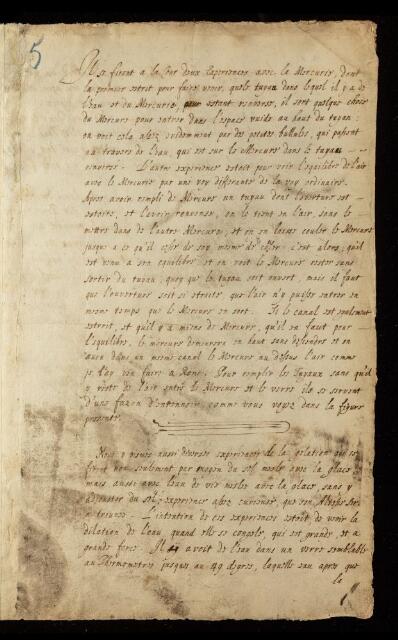 5
Il se firent a la Cour deux Experiences avec le Mercurie, dont
la premiere estoit pour faire voir, quels tuyau dans lequel il y a de
l'eau et du Mercurie, pour estant renversé, il sort quelque chose
du Mercure pour entrer dans l'espace vuide au haut du tuyau:
on voit cela assez evidemment par des petites bulles, qui passent
au travers de l'eau, qui est sur le Mercure dans le tuyau
renversé. L'autre experience estoit pour voir l'equilibre de l'air
avec le Mercurie par une voy differente de la voy ordinaire.
Apres avoir rempli de Mercure un tuyau dont l'ouverture est
estroite, et l'avoir renversé, on le tient en l'air, sans le
mettre dans de l'autre Mercure, et on en laisse couler le Mercure
jusques a ce qu'il cesse de soy mesme de cesser: c'est alors, qu'il
est venu a son equilibre, et on voit le Mercure rester sans
sortir du tuyau, quoy que le tuyau soit ouvert, mais il faut
que l'ouverture soit si etroite, que l'air n'y puisse entrer en
mesme temps que le Mercure en sort. Si le canal est seulement
estroit, et qu'il y a moins de Mercure, qu'il en faut pour
l'equilibre, le mercure demeurera en haut sans descendre et on
aura dans un mesme canal le Mercure au dessus l'air comme
je l'ay veu faire a Rome. Pour remplir les tuyaux sans qu'il
y reste de l'air entre le Mercure et le verre ils se servent
d'une façon d'entonnoir, comme vous voyez dans la figure
presente.
Nous y vismes aussi diverses experiences de la gelation qui se
firent non seulement par moyen du sel meslé avec la glace
mais aussi avec l'eau de vie meslée avec la glace, sans y
adjouster du sel: experience assez curieuse, que son Altesse Ser.
a trouvée. L'intention de ces experiences estoit de voir la
dilation de l'eau, quand elle se congele, qui est grande, et a
grande force. Il y avoit de l'eau dans un verre semblable
au Thermometre jusques au 49 degres, laquelle eau apres que
la